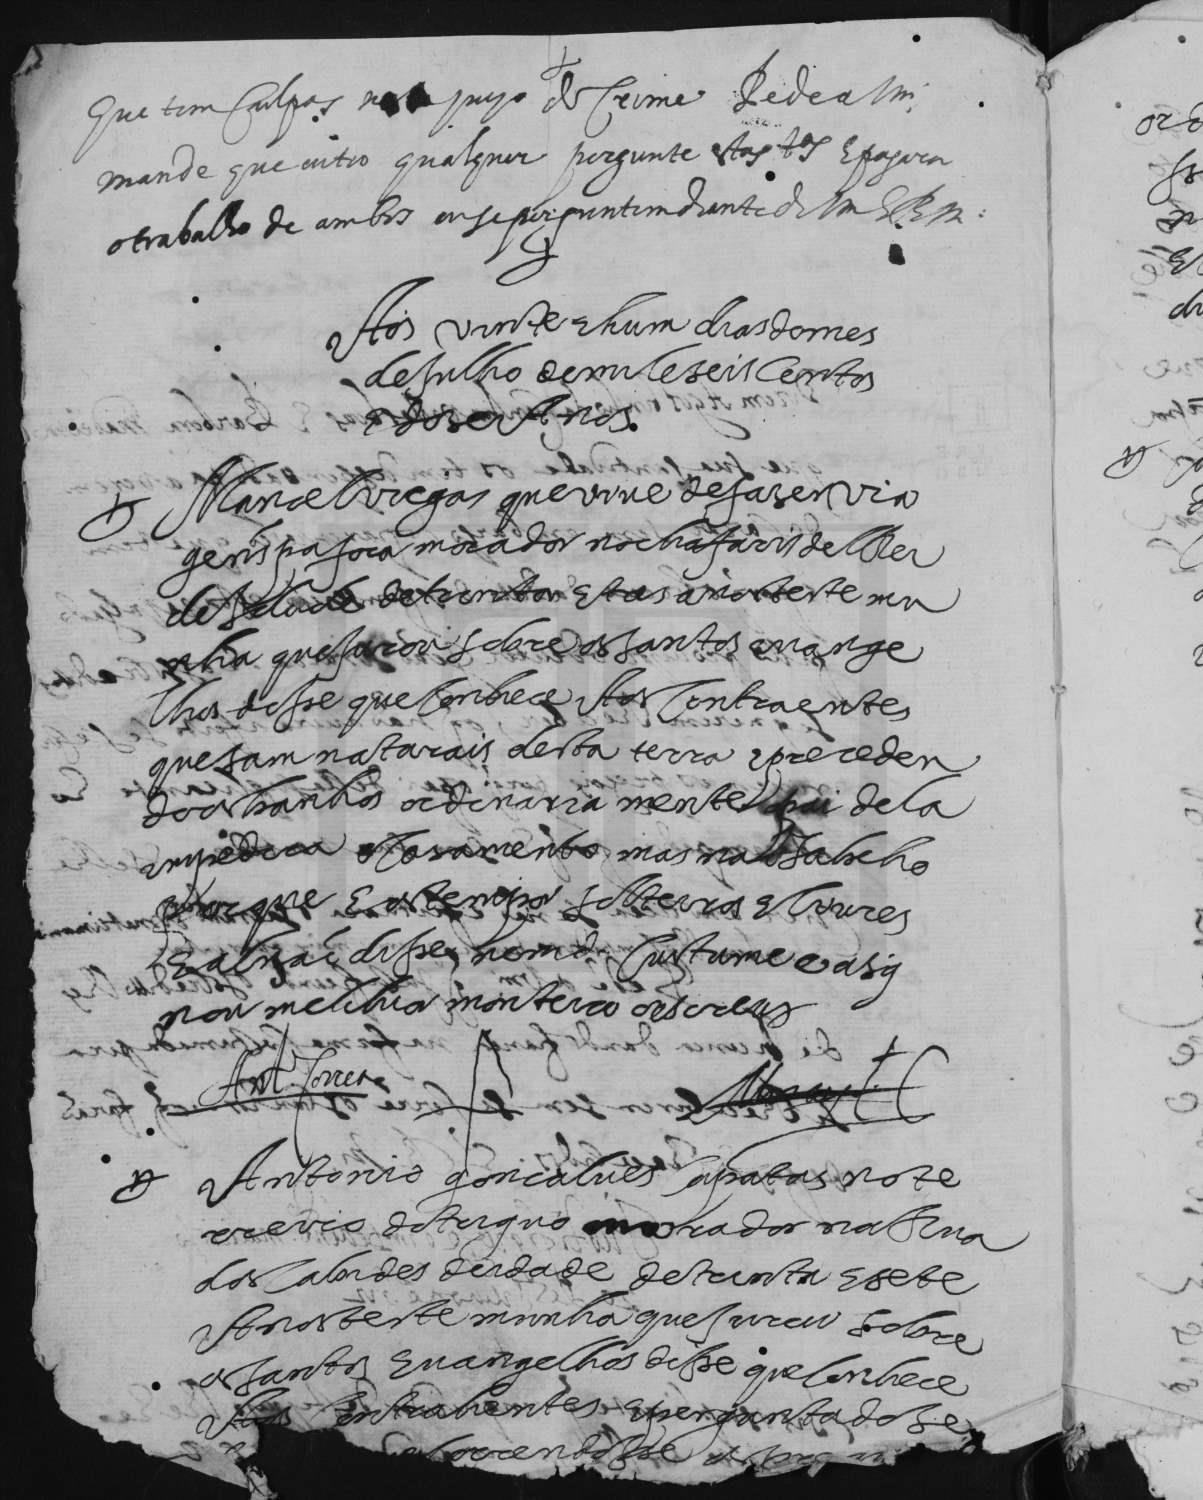 que tem culpas neste juyzo do Crime Pede a Vm
mande que outro qualquer pergunte estas tas e pagara
o trabalho de ambos ou se perguntem diante de Vm E R M
Aos vinte e hum dias do mes
de Julho de mil e seis centos
e dose Anos.
Manoel viegas que vive de faser via
gens pa fora morador no chafaris del Rei
de Idade de trinta e tres anos teste mu
nha que jurou sobre os santos euange
lhos disse que conhece Aos Contraentes
que sam naturais desta terra e preceden
do os banhos ordinaria mente o pai dela
impedira o Casamento mas não sabe
porque e os tem por solteiros e livres
e al não disse nem do custume e asig
nou melchior monteiro o escreui
Anto Correa
Antonio goncalues sapatas note
morador na Rua
dos Cabides de idade de trinta e sete
Anos teste munha que jurou sobre
os santos euangelhos disse que conhece
Aos contrahentes e perguntado se